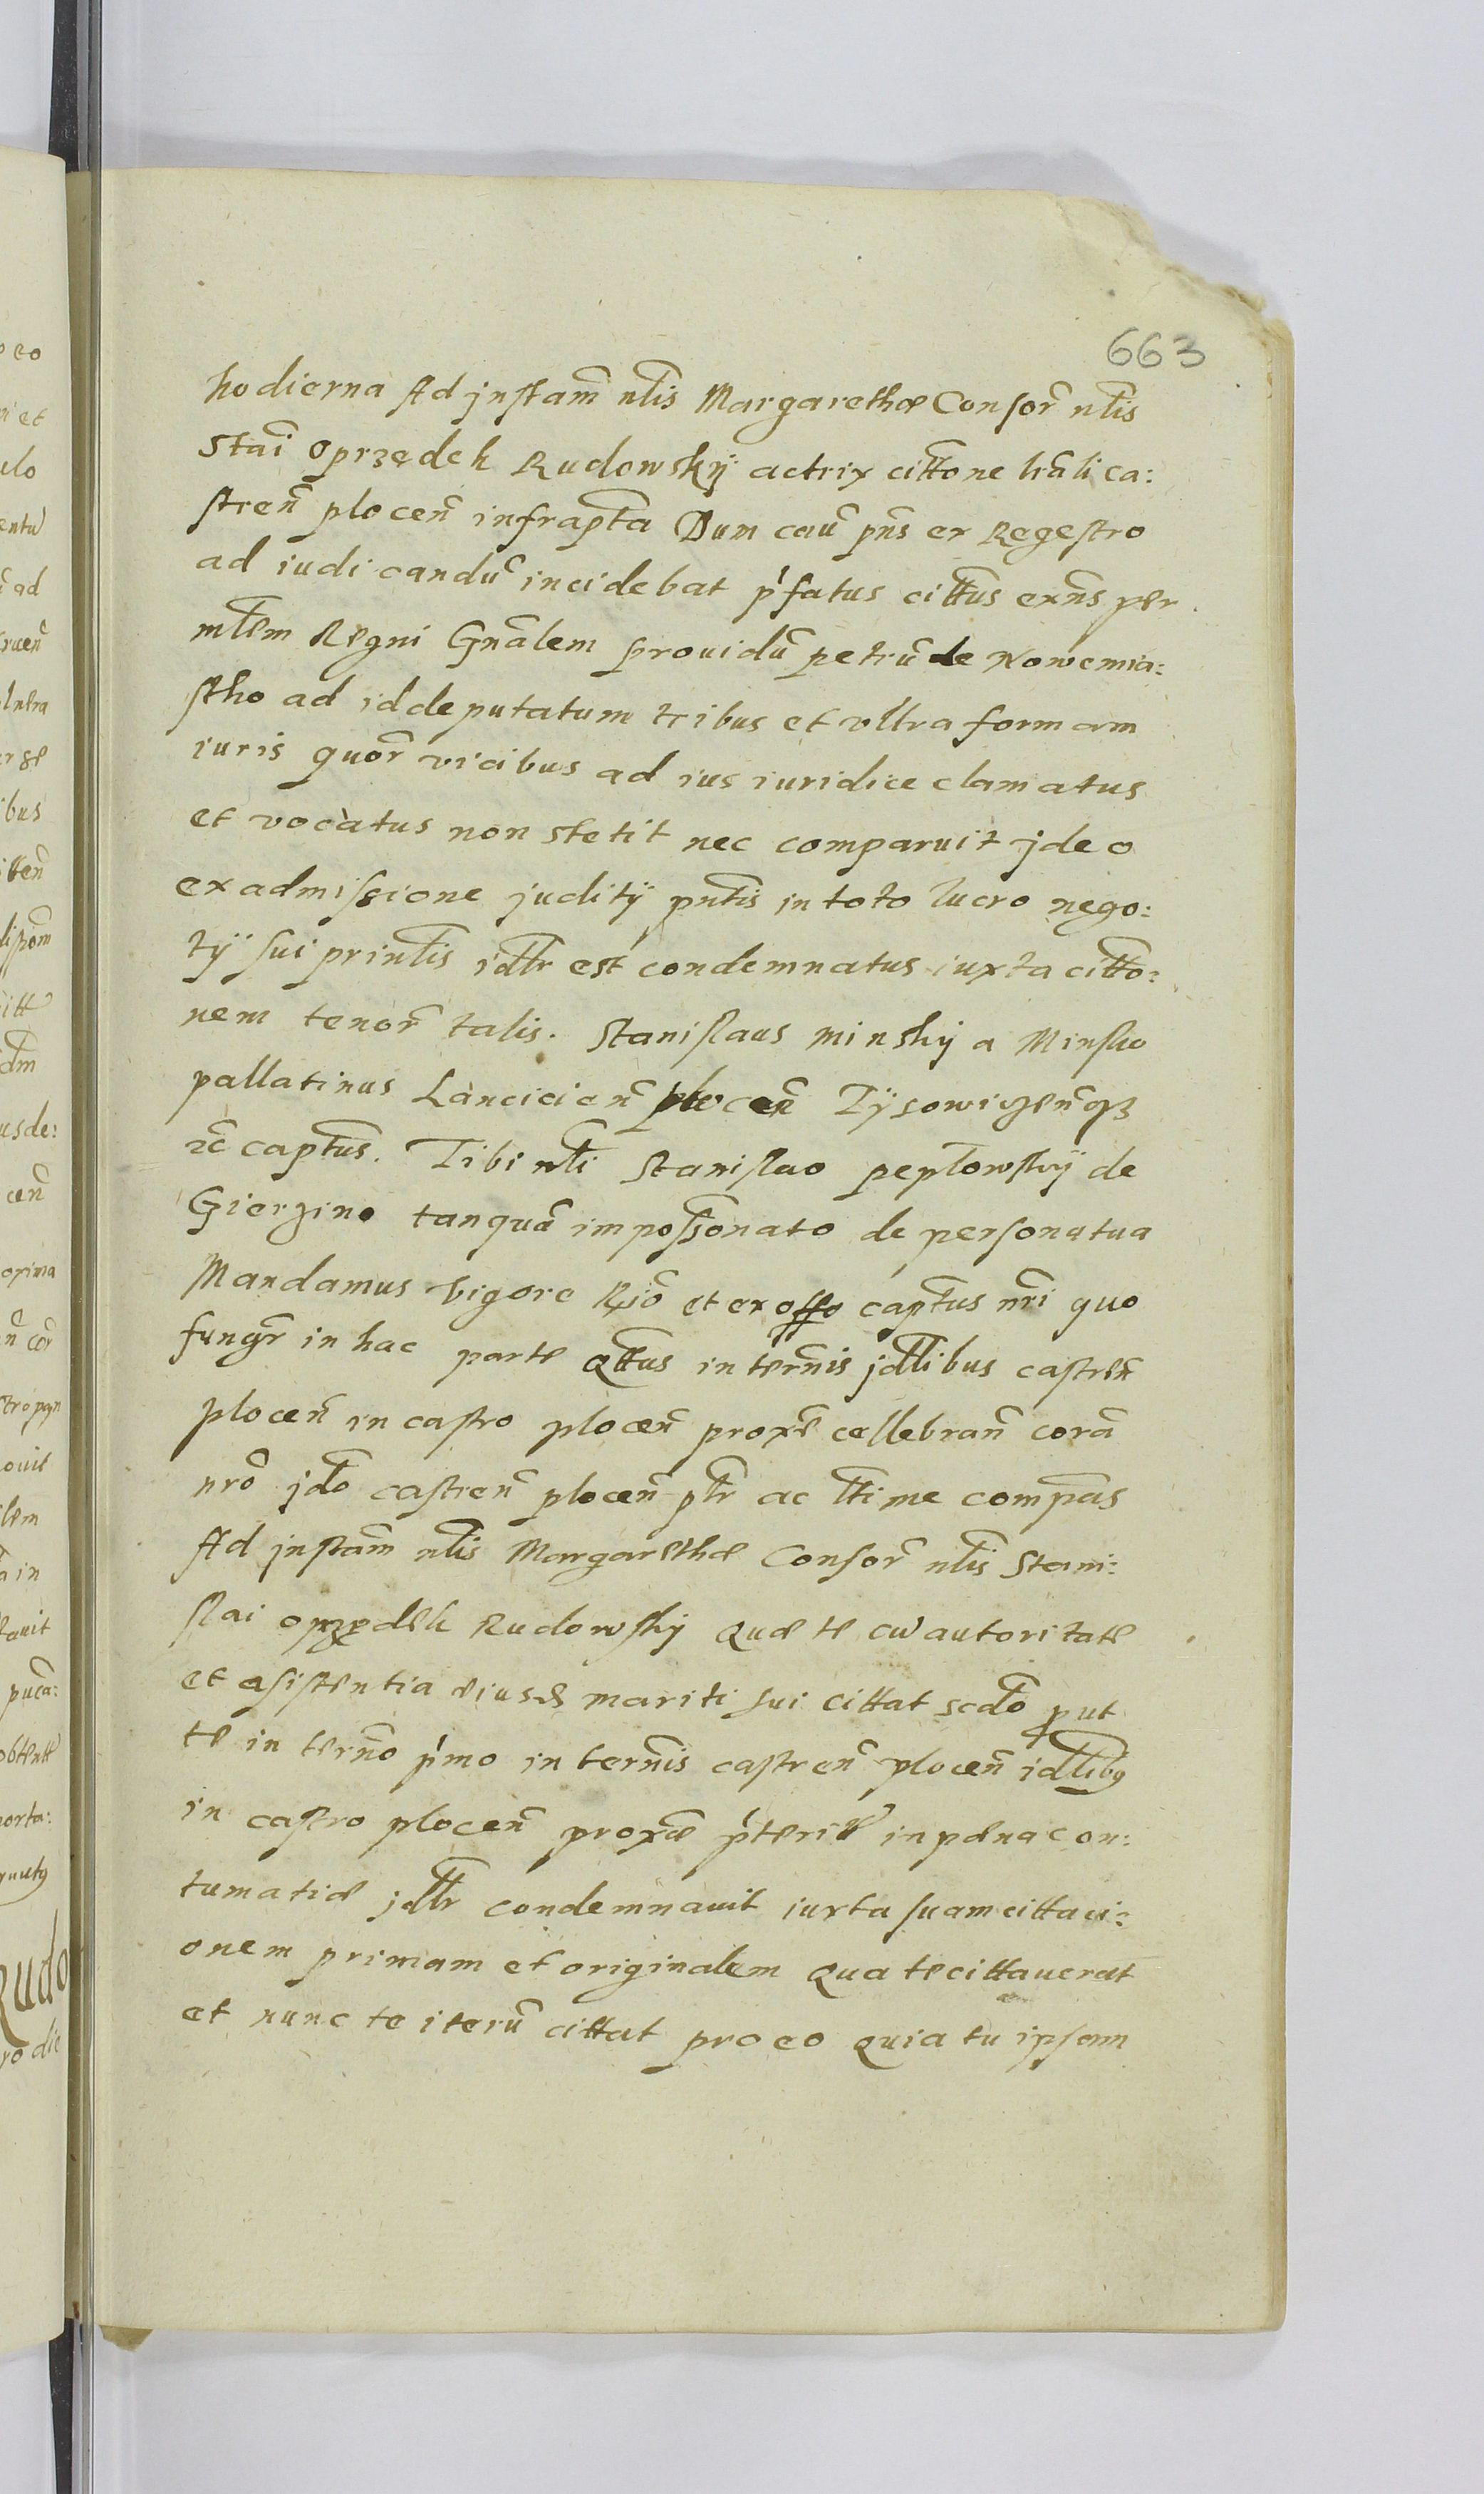 663
hodierna Ad jnstam̃ nt̃lis Margarethæ Consor̃ nt̃lis
Stai͠ Oprzędek Rudowskÿ actrix citt͠one lr͠ali ca:
stren̄ plocen̄ infrapt͠a Dum cau͠ pn͠s ex Regestro
ad iudicandu͠ incidebat p͛fatus citt͠us exn͠s per
mt͠lem Regni Gn͠alem prouidu͠ petru͠ de Nowemia:
stho ad id deputatum tribus et vltra formam
iuris quor͠ vicibus ad ius iuridice clamatus
et vocàtus non stetit nec comparuit jdeo
ex admissione juditÿ pnt͠is in toto lucro nego:
tÿ sui print͠lis jdl͠r est condemnatus iuxta citt͠o:
nem tenor͠ talis. Stanislaus minskÿ a Minsko
pallatinus Lànciciен̄ plocen̄
zc͠ capt͠us. Tibi nt͠li Stanislao peplowskÿ de
Gierzino tanquā impossonato de persona tua
Mandamus vigore et ex offo capt͠us nr͠i quo
fungr͠ in hac parte qtt͠us in term͠is jdl͠ibus castren̄
plocen̄ in castro plocen̄ prox͠e cellebran̄ corā
nr͠o jd͠o castren̄ plocen̄ pt͠r ac tt͠ime comp͠as
Ad jnstam͠ nt͠lis Margarethæ Consor͠ nt͠lis Stani:
slai oprzędek Rudowskÿ quæ te cu͠ autoritate
et asistentia eiusd mariti sui cittat scd͠o put
te in term͠o p͛mo in term͠is castren̄ plocen̄ jdl͠ibꝯ
in castro plocen̄ prox͠æ p͛terit in pæna con:
tumatiæ jdl͠r condemnauit iuxta suam cittaci:
onem primam et originalem qua te cittauerat
et nunc te iteru͠ cittat pro eo quia tu ipsam